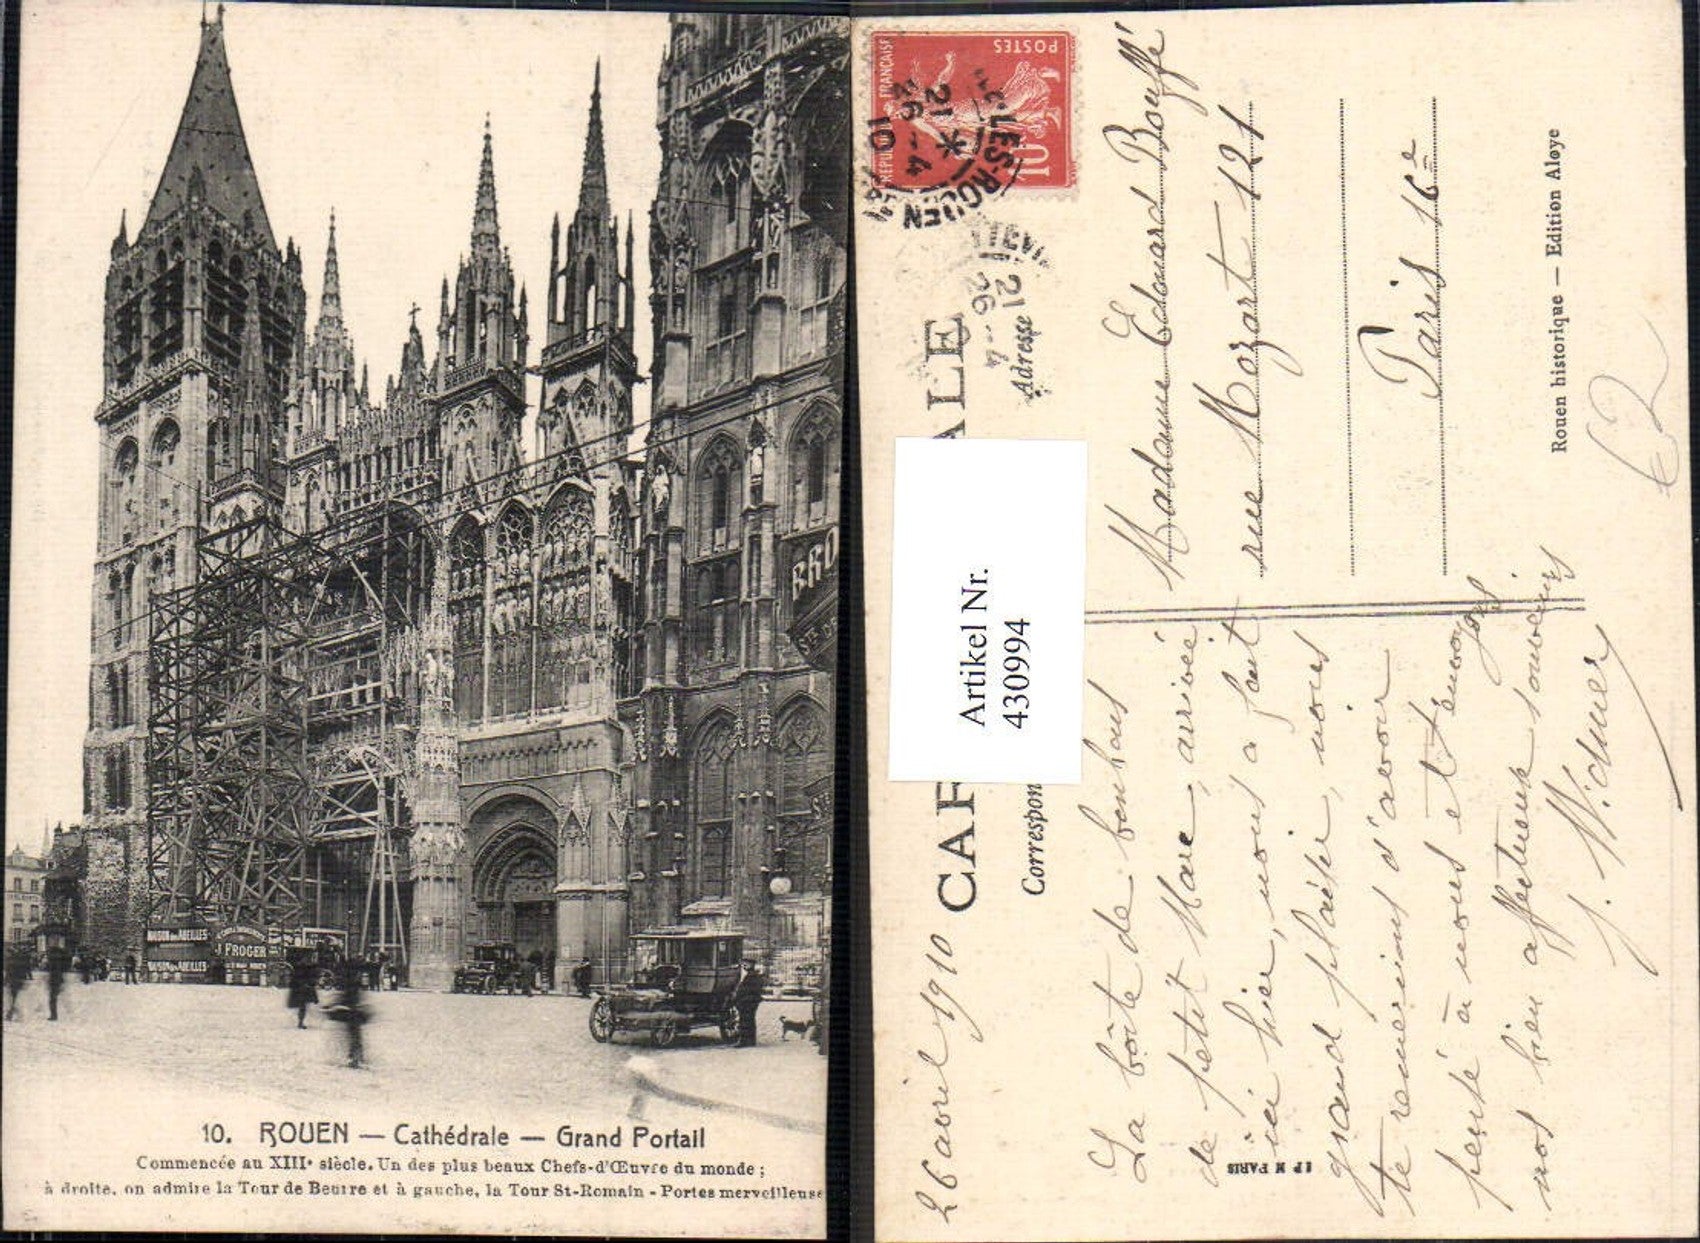 BRO
MAISON DES ABEILLES
J. FROGER
MAISON DES ABEILLES
10. ROUEN — Cathédrale — Grand Portail
Commencée au XIIIe siècle. Un des plus beaux Chefs-d'Œuvre du monde ;
à droite, on admire la Tour de Beurre et à gauche, la Tour St-Romain - Portes merveilleuse
POSTES
REPUBLIQUE FRANÇAISE
10
LES-ROUEN
21 *
26 - 4
10
21
26 - 4
CAR
ALE
Correspon
Adresse
Artikel Nr.
430994
26 avril 1910
La boîte de bonbons
de petit Marc, arrivée
ici hier, nous a fait
grand plaisir, nous
te remercions d'avoir
pensé à nous et t'envoyons
nos bien affectueux souvenirs
J. Widmer
Madame Edouard Bouffé
rue Mozart 121
Paris 16e
Rouen historique — Edition Aloye
E P M PARIS
€2